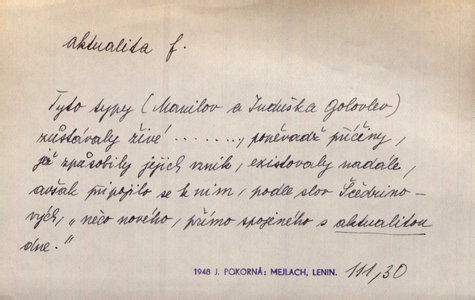 aktualita f.
Tyto typy (Manilov a Juduška Golovlev)
zůstávaly živé . . . . . . ., poněvadž příčiny,
jež způsobily jejich vznik, existovaly nadále,
avšak připojilo se k nim, podle slov Ščedrino-
vých, „něco nového, přímo spojeného s aktualitou
dne.“
1948 J. POKORNÁ: MEJLACH, LENIN. 111,30